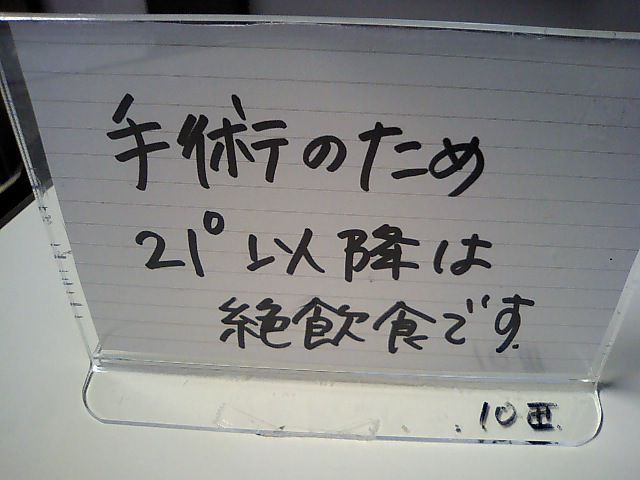 手術のため
21°以降は
絶飲食です.
10西